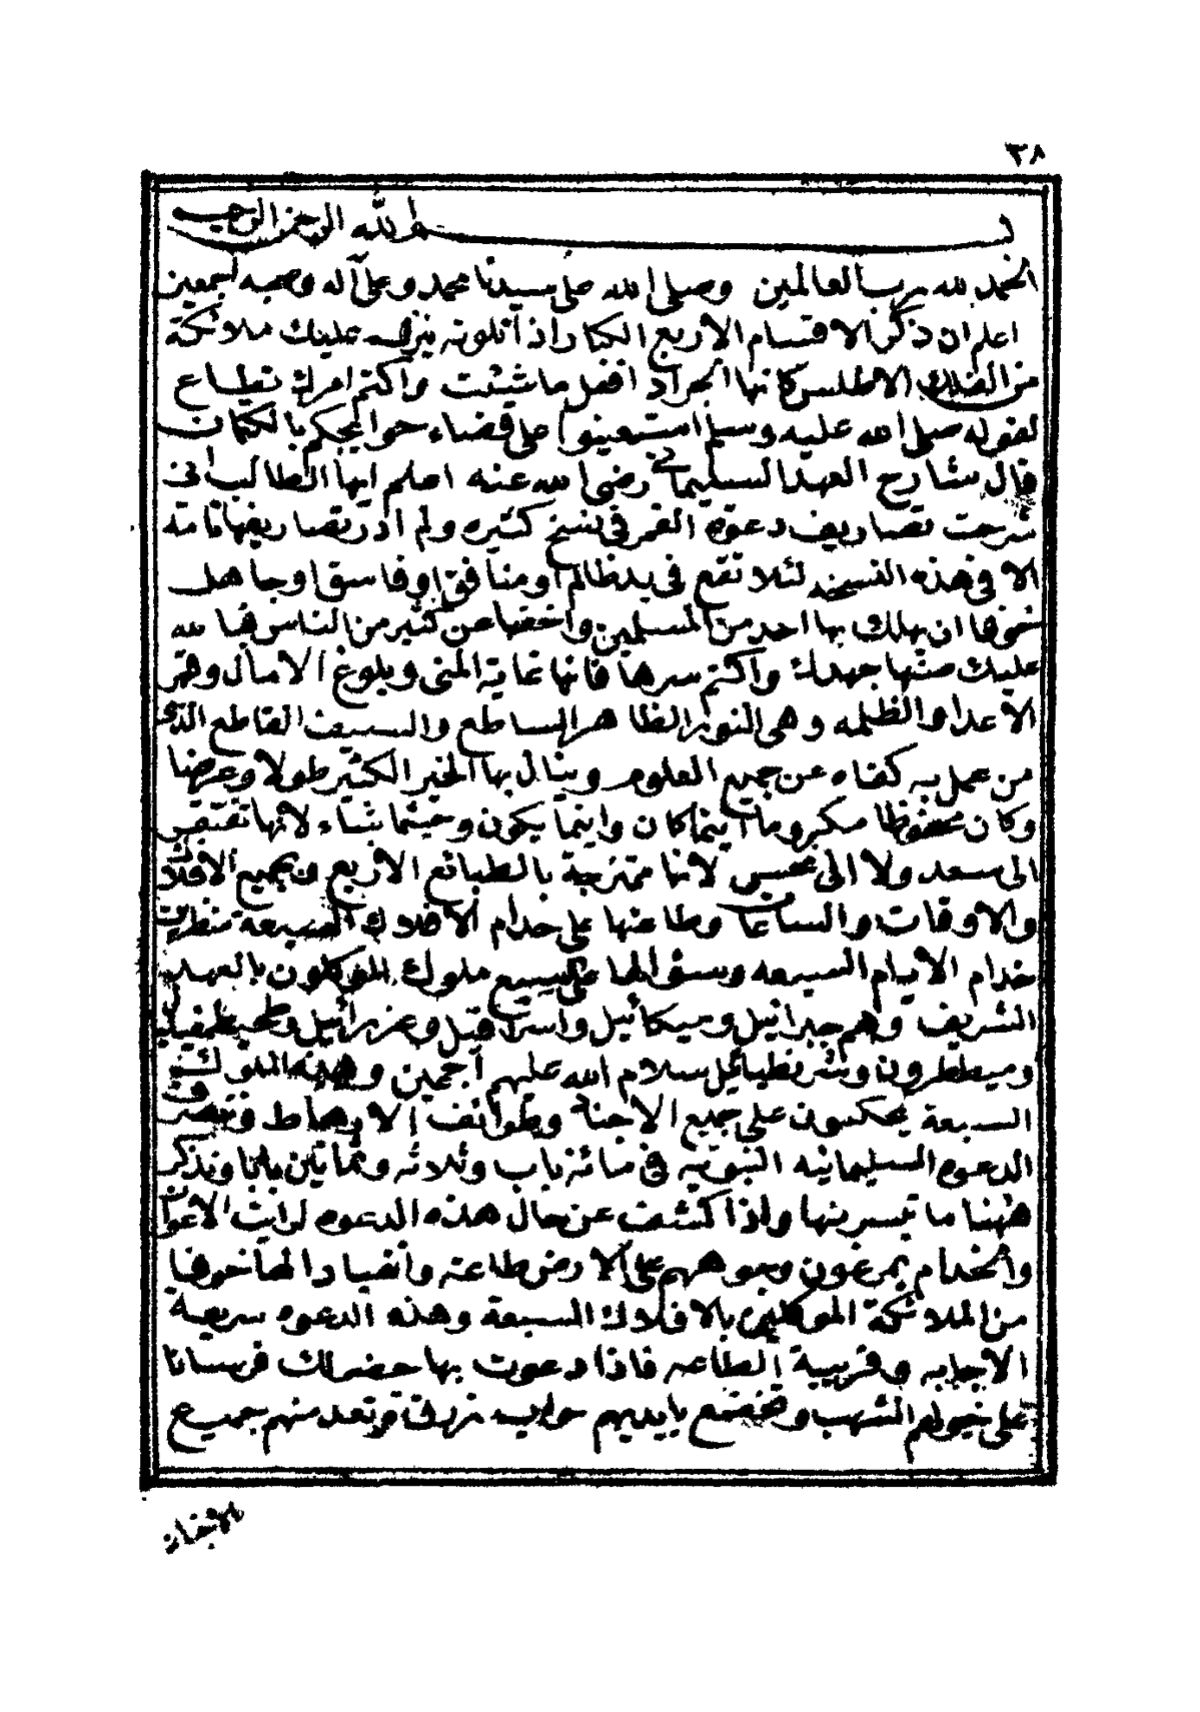 ٣٨
بسم الله الرحمن الرحيم
الحمد لله رب العالمين وصلى الله على سيدنا محمد وعلى آله وصحبه اجمعين
اعلم ان ذكر الاقسام الاربع الكبار اذا تلوته ينزل عليك ملائكة
من الفلك الاطلس كانها الجراد افعل ما شئت واكتم امرك تطاع
لقوله صلى الله عليه وسلم استعينوا على قضاء حوايجكم بالكتمان
قال شارح العهد السليماني رضى الله عنه اعلم ايها الطالب انى
شرحت تصاريف دعوة القمر فى نسخ كثيره ولم اذكر تصاريفها تامة
الا فى هذه النسخه لئلا تقع فى يد ظالم او منافق او فاسق او جاهل
خوفا ان يهلك بها احد من المسلمين واخفها عن كثير من الناس فبالله
عليك صنها جهدك واكتم سرها فانها غاية المنى وبلوغ الامال وقهر
الاعدا والظلمه وهى النور الظاهر الساطع والسيف القاطع الذى
من عمل به كفاه عن جميع العلوم وينال بها الخير الكثير طولا وعرضا
وكان محفوظا مكروما اينما كان واينما يكون وحيثما شاء لانها تفتقر
الى سعد ولا الى نحس لانها ممتزجة بالطبائع الاربع من جميع الافلاك
والاوقات والساعات وطاعتها على خدام الافلاك السبعة
خدام الايام السبعه وسؤالها على السبع ملوك الموكلون بالعهد
الشريف وهم جبرائيل وميكائيل واسرافيل وعزرائيل
وميططرون سلام الله عليهم أجمعين وهذه الملوك
السبعة يحكمون على جميع الاجنة وطوائف الارهاط
الدعوه السليمانيه النبويه فى مائة باب وثلاثه وثمانين بابا ونذكر
ههنا ما تيسر منها واذا كشفت عن حال هذه الدعوه لرايت الاعوان
والخدام يمرغون وجوههم على الارض طاعته وانقيادا لها خوفا
من الملائكة الموكلين بالافلاك السبعة وهذه الدعوه سريعة
الاجابه وقريبة الطاعه فاذا دعوت بها حضر لك فرسانا
على خيولهم الشهب بايديهم حراب زرق وتعد منهم جميع